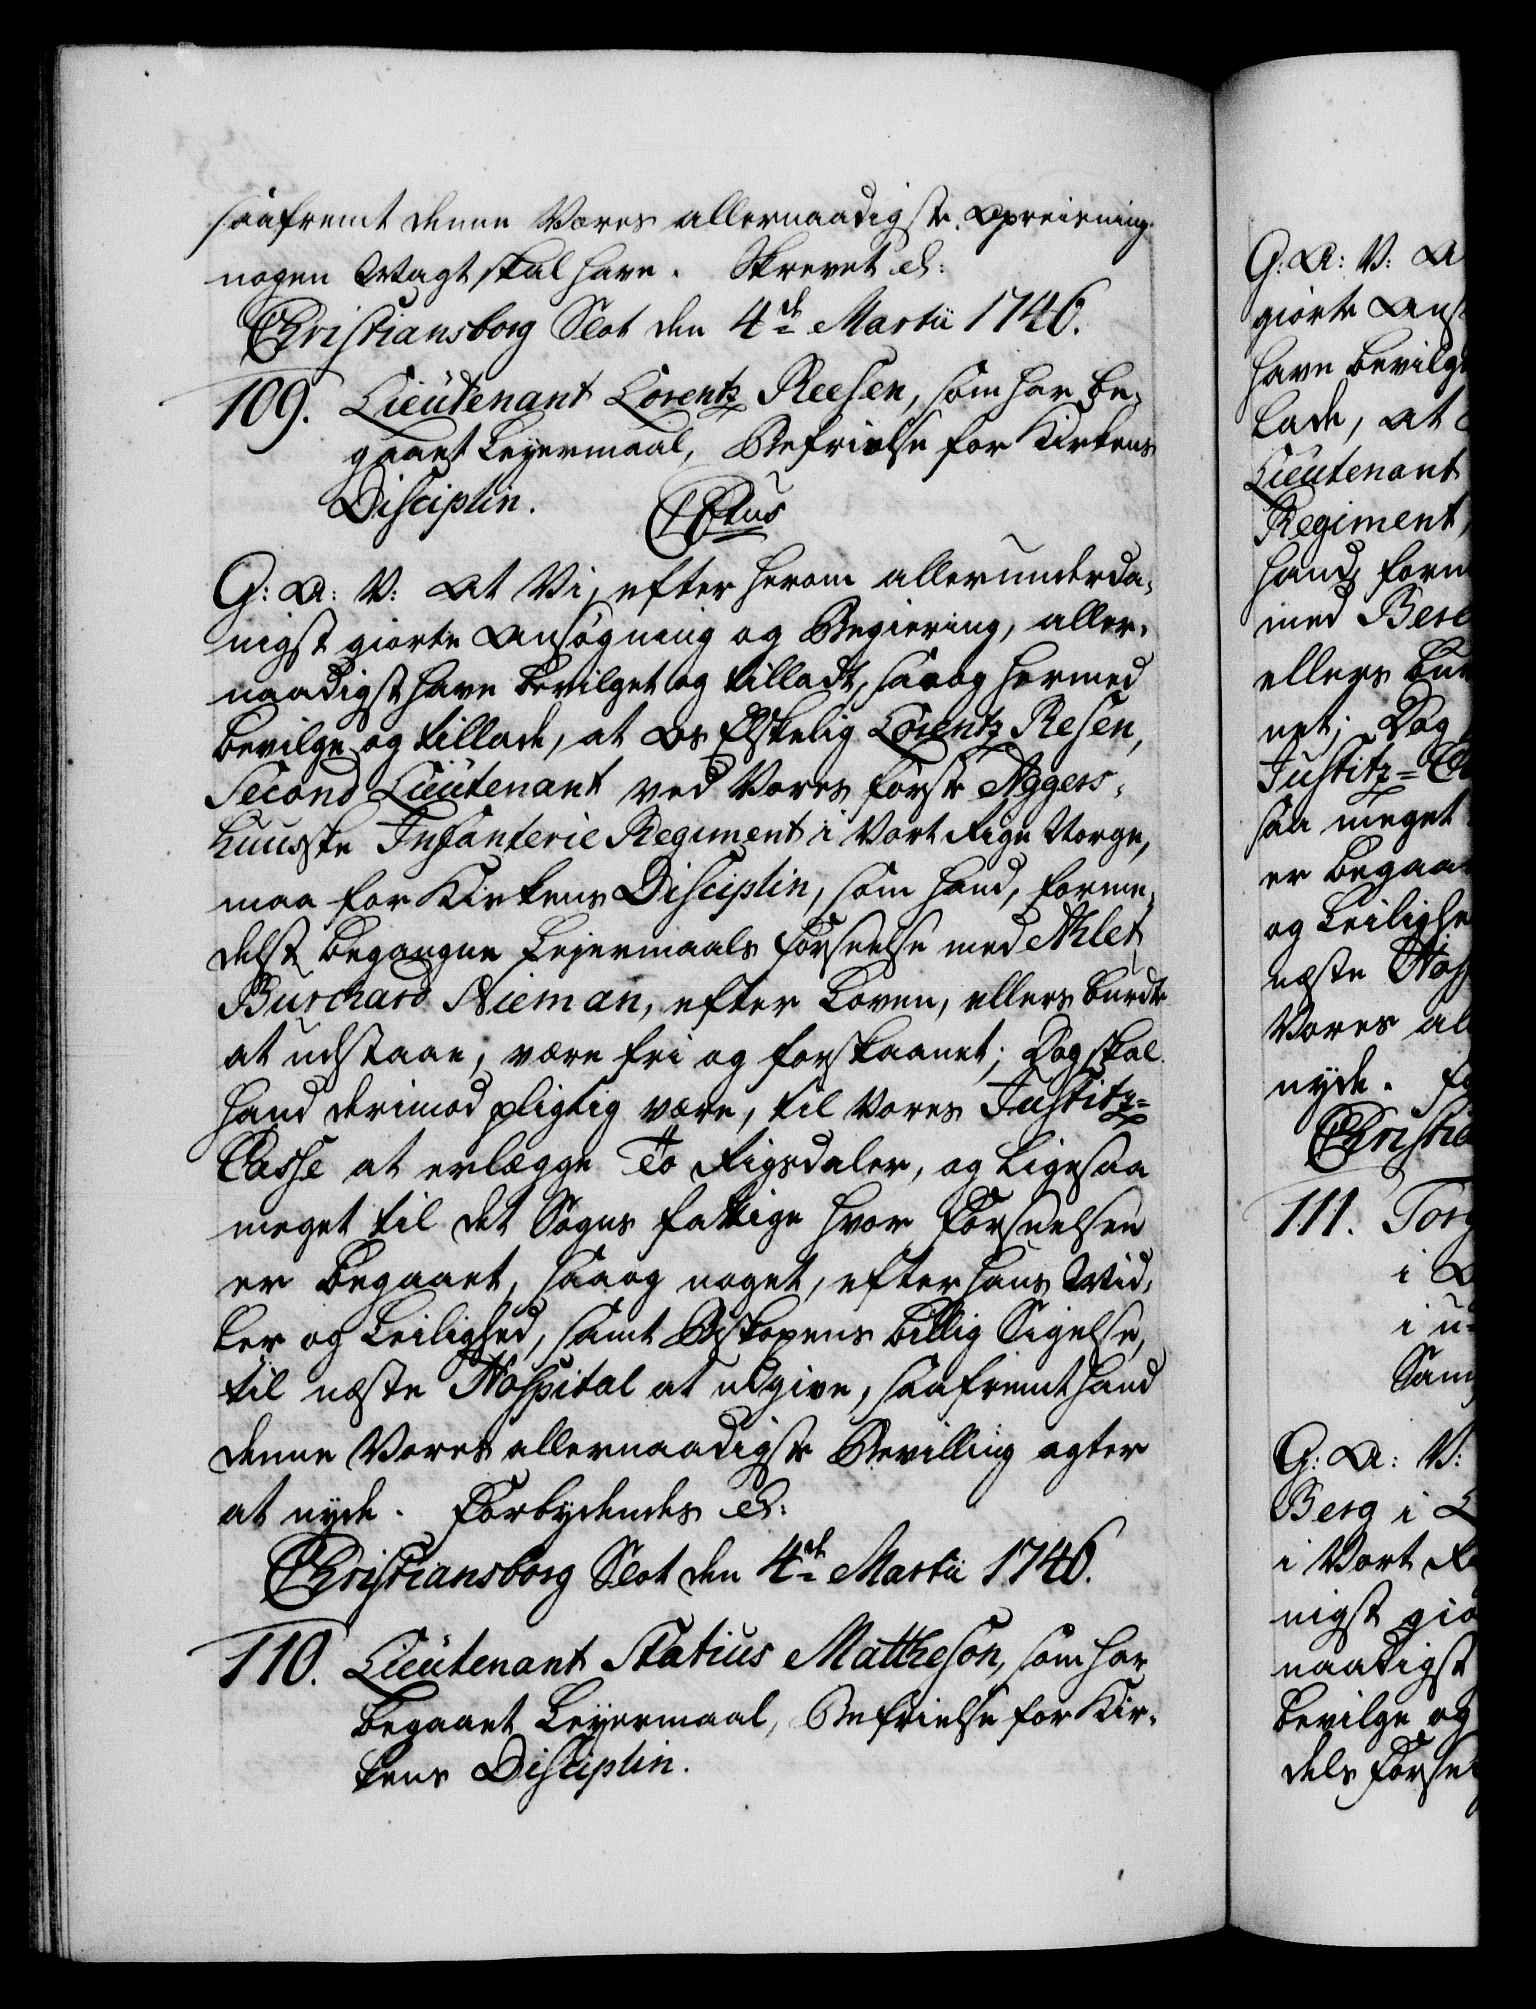 saafremt denne Vores allernaadigste Opreisning
nogen Magt skal have. Skrevet etc:
Christiansborg Slot den 4de Martii 1746.
109. Lieutenant Lorentz Reesen, som har be-
gaaet Leyermaal, Befrielse for Kirkens
Disciplin.
CPtus
G: A: V: At Vi, efter herom allerunderda-
nigst giorte Ansøgning og Begiering, aller-
naadigst have bevilget og tilladt, saa og hermed
bevilge og tillade, at Os Elskelig Lorentz Resen,
Second Lieutenant ved Vores første Aggers-
huusske Infanterie Regiment i Vort Rige Norge,
maa for Kirkens Disciplin, som hand, forme-
delst begangne Lejermaals Forseelse med Ahlet
Burchard Nieman, efter Loven, ellers burde
at udstaae, være fri og forskaanet; Dog skal
hand derimod pligtig være, til Vores Justitz-
Casse at erlægge To Rigsdaler, og Ligesaa
meget til det Sogns fattige hvor Forseelsen
er begaaet, saa og noget, efter hans Mid-
ler og Leilighed, samt Biskopens billig Sigelse,
til næste Hospital at udgive, saafremt hand
denne Vores allernaadigste Bevilling agter
at nyde. Forbydendes etc:
Christiansborg Slot den 4de Martii 1746.
110. Lieutenant Statius Mattheson, som har
begaaet Leyermaal, Befrielse for Kir-
kens Disciplin.
G: A: V: A
giorte Ans
have bevilg
lade, at
Lieutenant
Regiment,
hand, form
med Bere
ellers bur
net; Dog
Justitz-Ca
saa meget
er begaa
og Leilighe
næste Hos
Vores al
nyde. Fo
Christia
111. Torg
i
i u
Sam
G: A: V:
Berg i
i Vort R
nigst gio
naadigst
bevilge og
dels Forse